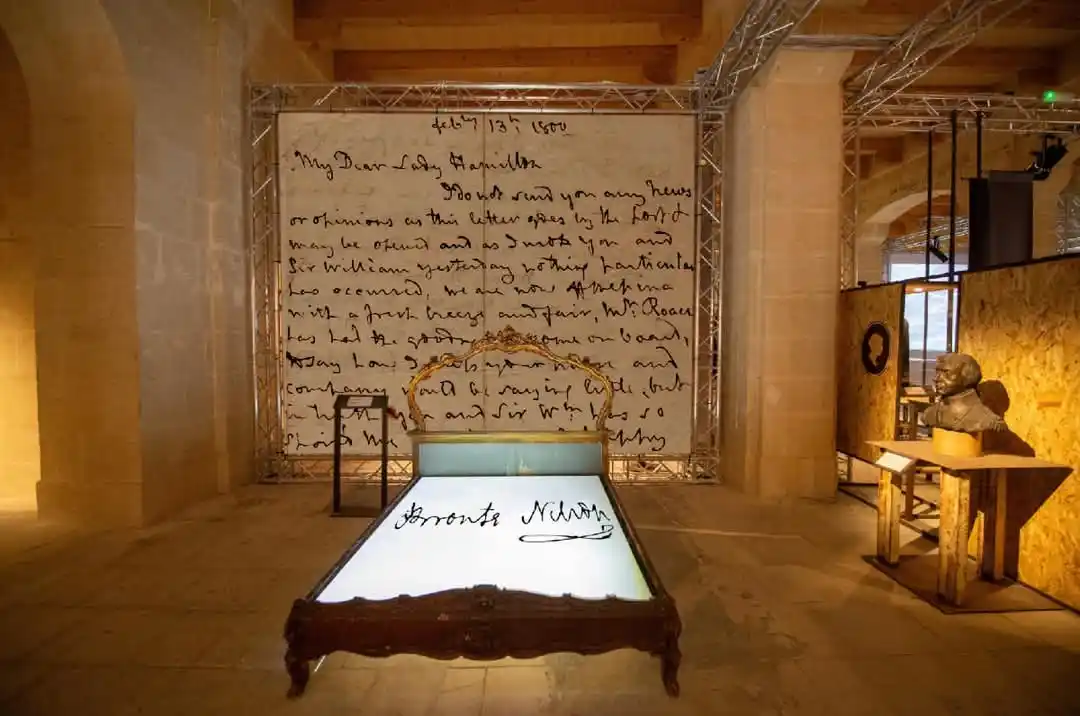 feb:y 13th 1800
My Dear Lady Hamilton
I do not send you any News
or opinions as this letter goes by the Port &
may be opened and as I wrote you and
Sir William yesterday nothing particular
has occurred, we are now off
with a fresh breeze and fair, Mr. Roach
has had the come on board,
say how I and
company would be saying little, but
in and Sir Wm. has so
Bronte Nelson